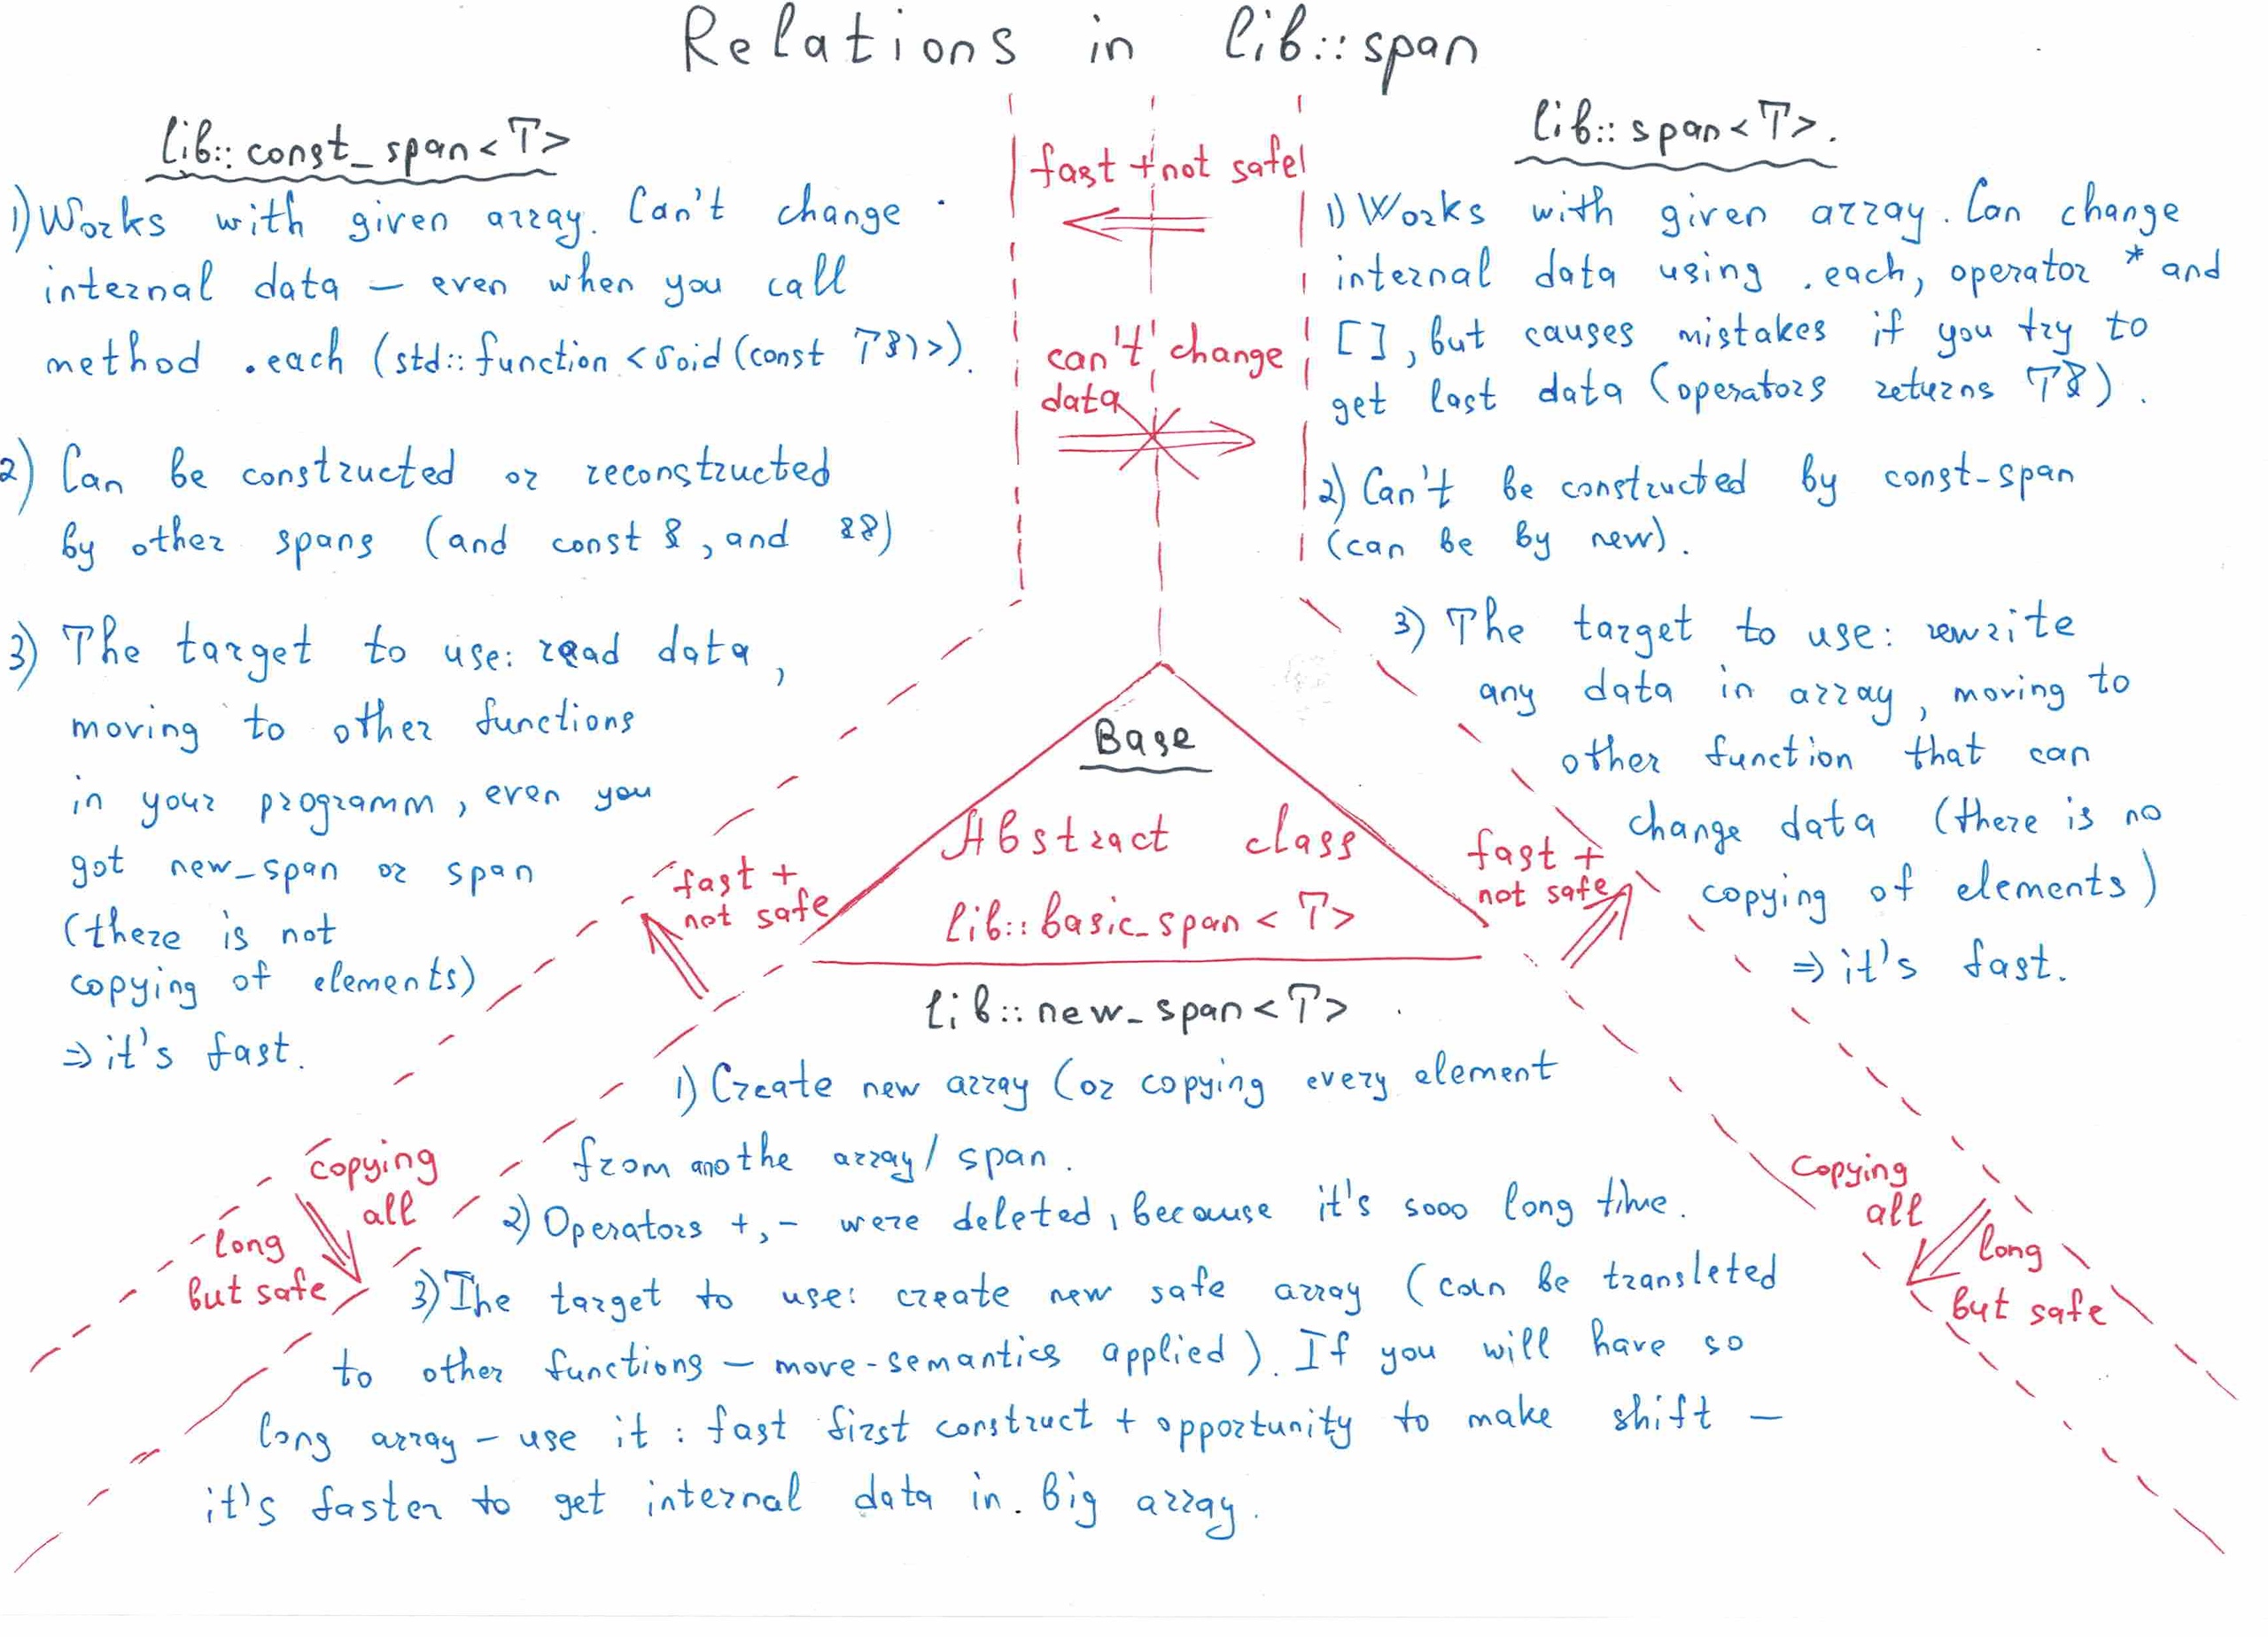 Relations in lib::span
lib::const_span<T>
1) Works with given array. Can't change
internal data – even when you call
method .each (std::function <void(const T&)>).
2) Can be constructed or reconstructed
by other spans (and const &, and &&)
3) The target to use: read data,
moving to other functions
in your programm, even you
got new_span or span
(there is not
copying of elements)
⇒ it's fast.
fast + not safe!
can't change
data
lib::span<T>.
1) Works with given array. Can change
internal data using .each, operator * and
[], but causes mistakes if you try to
get last data (operators returns T&).
2) Can't be constructed by const-span
(can be by new).
3) The target to use: rewrite
any data in array, moving to
other function that can
change data (there is no
copying of elements)
⇒ it's fast.
Base
Abstract class
lib::basic_span<T>
fast +
not safe
fast +
not safe
lib::new_span<T>
1) Create new array (or copying every element
from anothe array/ span.
2) Operators +,- were deleted, because it's sooo long time.
3) The target to use: create new safe array (can be transleted
to other functions – move-semantics applied). If you will have so
long array – use it: fast first construct + opportunity to make shift –
it's faster to get internal data in. big array.
copying
all
long
but safe
copying
all
long
but safe